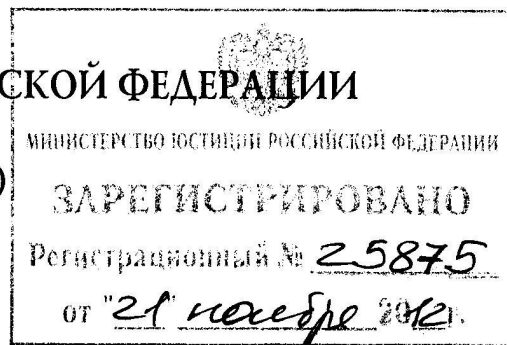 СКОЙ ФЕДЕРАЦИИ
МИНИСТЕРСТВО ЮСТИЦИИ РОССИЙСКОЙ ФЕДЕРАЦИИ
)
ЗАРЕГИСТРИРОВАНО
Регистрационный № 25875
от "21" ноября 2012г.